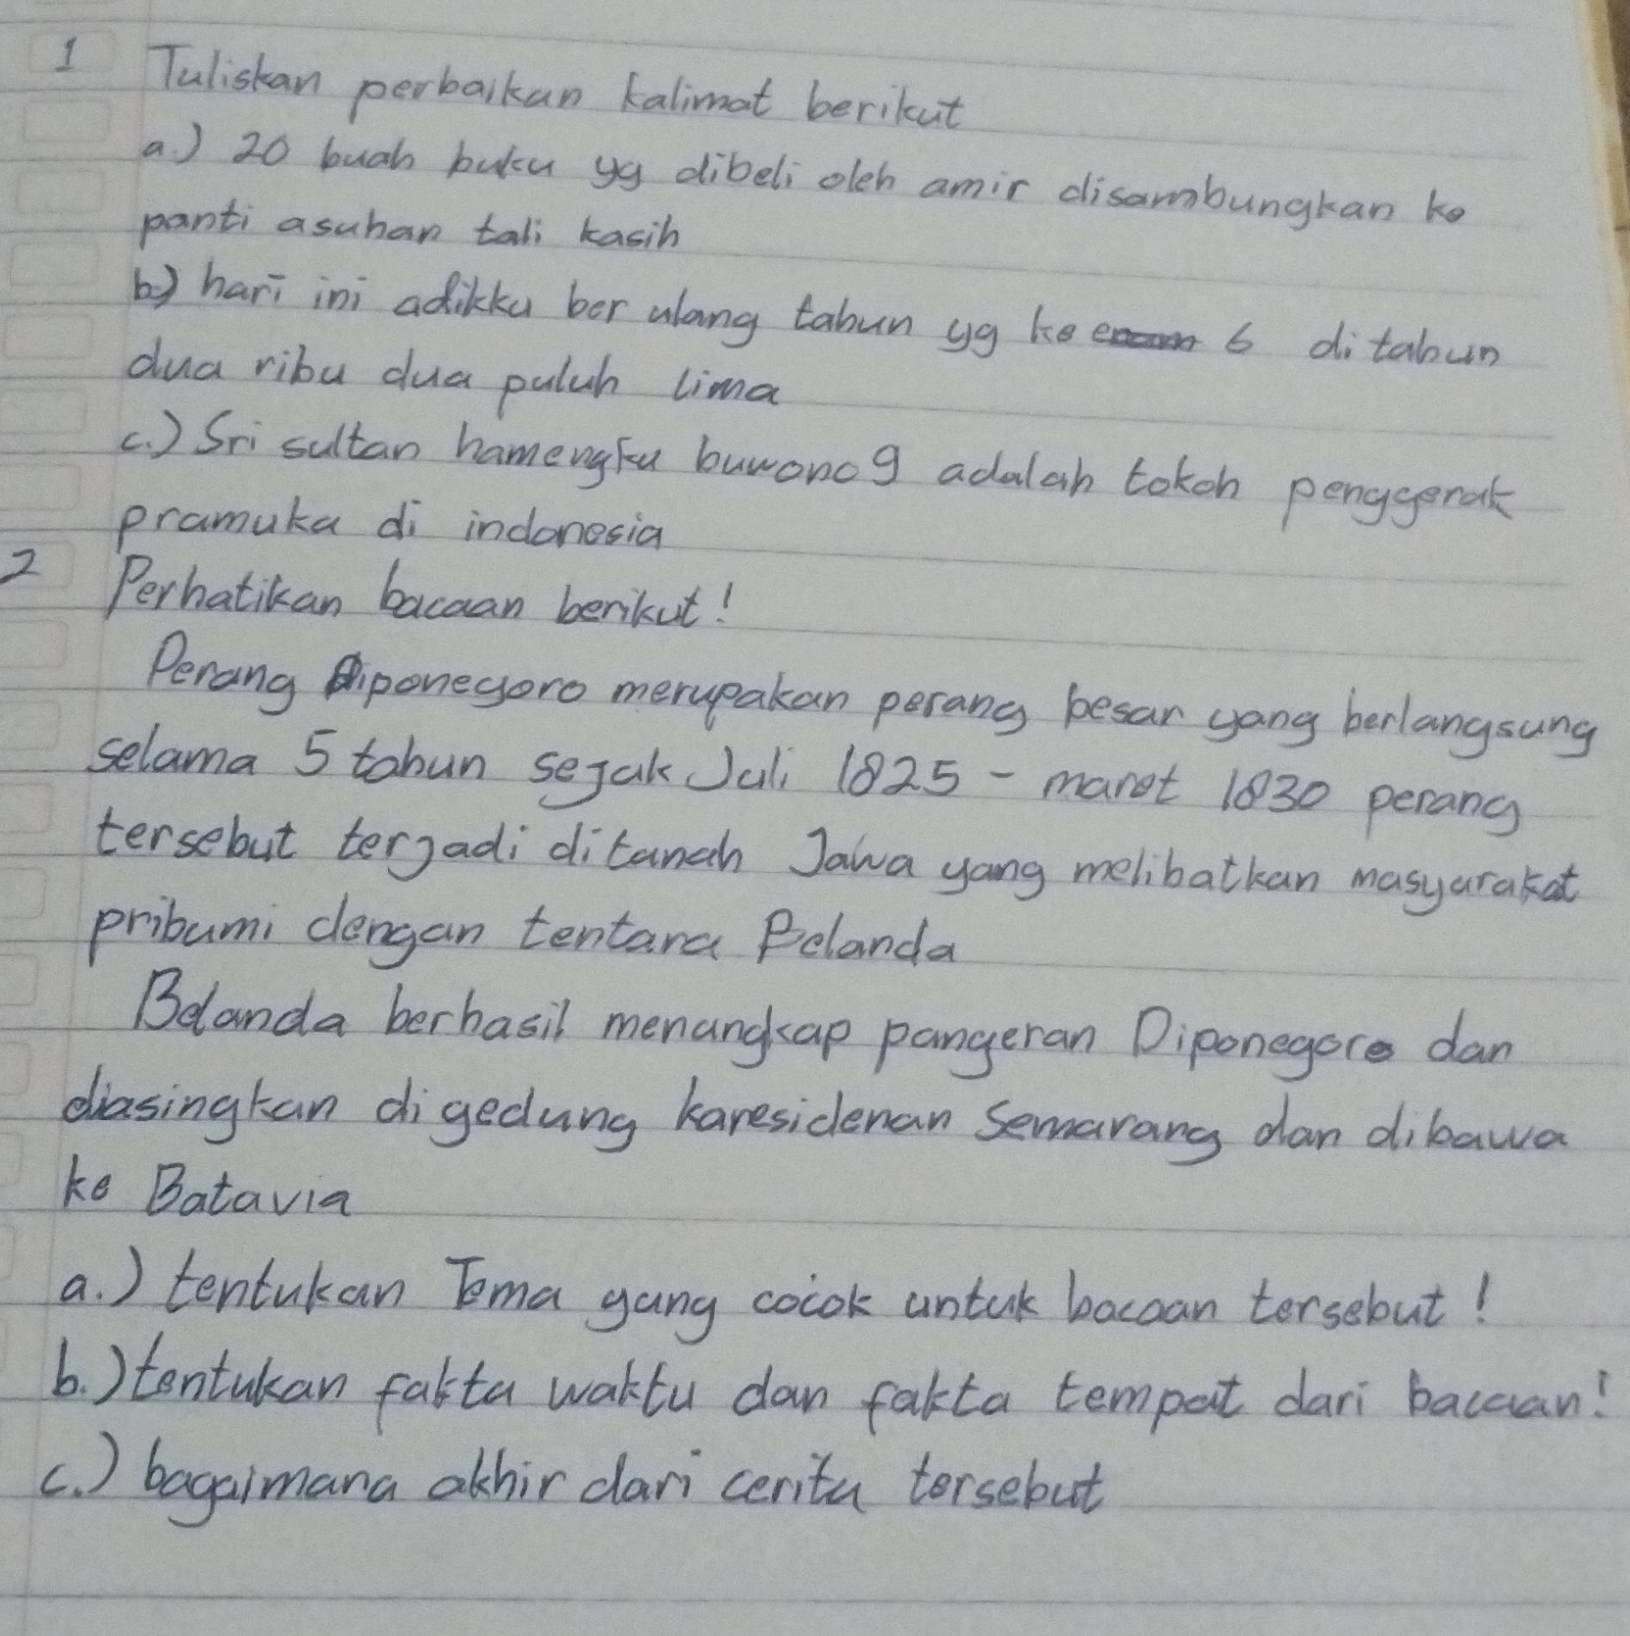 1 Tuliskan perbaikan kalimat berikut
a.) 20 buah buku yg dibeli oleh amir disambungkan ke
panti asuhan tali kasih
b.) hari ini adikku ber ulang tahun yg ke enam 6 di tahun
dua ribu dua puluh lima
c.) Sri sultan hamengku buwono 9 adalah tokoh penggerak
pramuka di indonesia
2 Perhatikan bacaan berikut!
Perang diponegoro merupakan perang besar yang berlangsung
selama 5 tahun sejak Juli 1825 - maret 1830 perang
tersebut terjadi ditanah Jawa yang melibatkan masyarakat
pribumi dengan tentara Belanda
Belanda berhasil menangkap pangeran Diponegoro dan
diasingkan di gedung karesidenan Semarang dan dibawa
ke Batavia
a.) tentukan Tema yang cocok untuk bacaan tersebut!
b.) tentukan fakta waktu dan fakta tempat dari bacaan!
c.) bagaimana akhir dari cerita tersebut